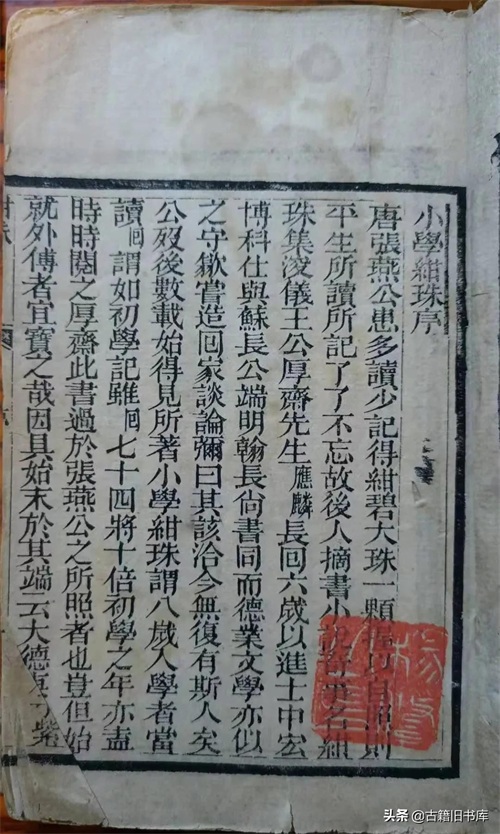 小學紺珠序
唐張燕公患多讀少記得紺碧大珠一顆握以自照則
平生所讀所記了了不忘故後人摘書小說奇事名紺
珠集浚儀王公厚齋先生應麟長囘六歲以進士中宏
博科仕與蘇長公端明翰長尚書同而德業文學亦似
之守歙嘗造囘家談論彌日其該洽今無復有斯人矣
公歿後數載始得見所著小學紺珠謂八歲入學者當
讀囘謂如初學記雖囘七十四將十倍初學之年亦盍
時時閱之厚齋此書過於張燕公之所照者也豈但始
就外傅者宜寶之哉因具始末於其端云大德庚子紫
序
头条 @古籍旧书库